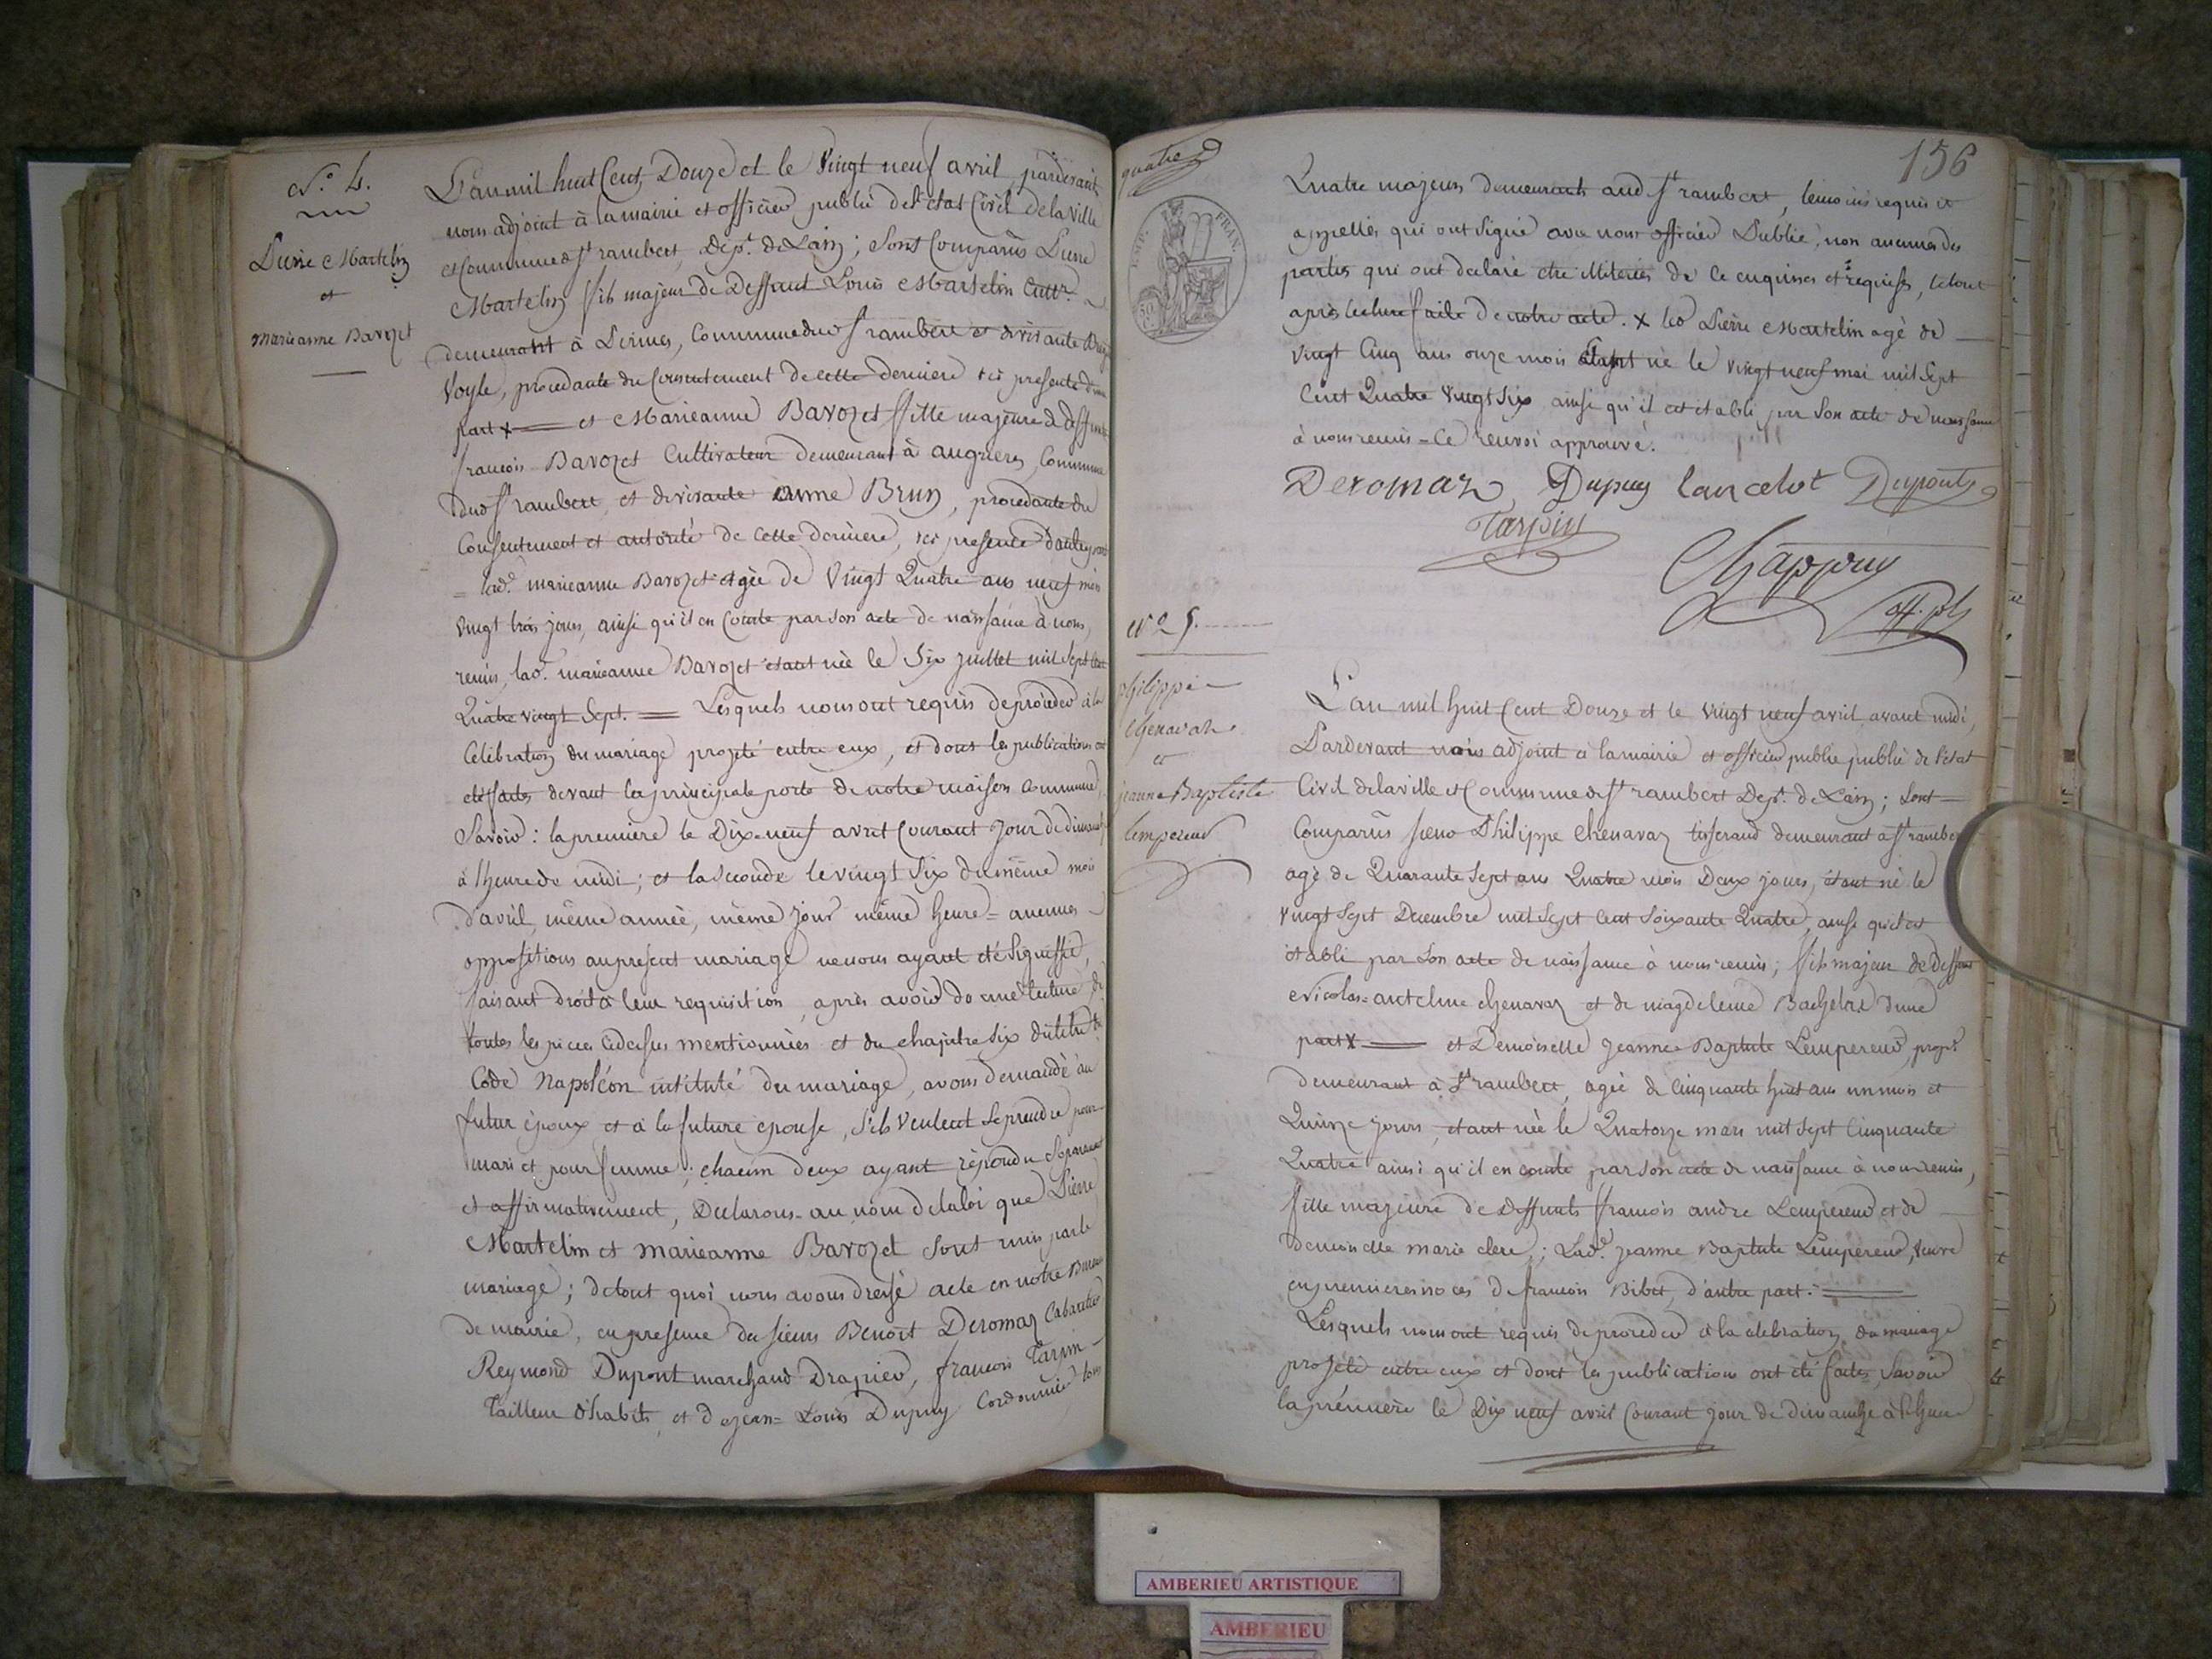 N.° 4.
Pierre Martelin
et
marieanne Barozet
L'an mil huit Cent Douze et le Vingt neuf avril, pardevant
nous adjoint à la mairie et officier public de l'état Civil de la Ville
et Commune de St rambert, Dépt. de Lain; sont Comparus Pierre
Martelin fils majeur de Deffunt Louis Martelin Cultr.
demeurant à Serines, Commune dud St rambert et de vivante
Voyle, procedante du Consentement de cette derniere ici presente d'une
part x et Marieanne Barozet fille majeure de deffunt
francois Barozet Cultivateur demeurant à angrieres, Commune
dud St rambert, et de vivante anne Brun, procedante du
Consentement et autorité de Cette derniere, ici presente d'autre part
= lad.e marieanne Barozet agée de Vingt Quatre ans neuf mois
vingt trois jours, ainsi qu'il en Conste par son acte de naissance à nous
remis, lad.e marieanne Barozet etant née le Six juillet mil Sept Cent
Quatre vingt Sept. = Lesquels nous ont requis de procéder à la
Célébration du mariage projeté entre eux, et dont les publications ont
été faites devant la principale porte de notre maison Commune,
Savoir: la première le Dix-neuf avril Courant jour de dimanche
à l'heure de midi; et la seconde le vingt Six du même mois
d'avril, même année, même jour même heure = aucunes
oppositions au present mariage ne nous ayant été Signiffié,
faisant droit à leur requisition, après avoir donné lecture de
toutes les pieces cidessus mentionnées et du chapitre six du titre du
Code Napoléon intitulé du mariage, avons demandé au
futur époux et à la future épouse, s'ils veulent se prendre pour
mari et pour femme; chacun d'eux ayant répondu séparément
et affirmativement, Déclarons au nom de la loi que Pierre
Martelin et marieanne Barozet sont unis par le
mariage; de tout quoi nous avons dressé acte en notre Bureau
de mairie, en presence des sieurs Benoit Deromaz Cabaretier
Reymond Dupont marchand Drapier, francois Tarpin
Tailleur d'habits, et de jean-Louis Dupuy Cordonnier tous
quatre
156
TIMP. FRAN.
50
Quatre majeurs demeurants aud St rambert, temoins requis et
appellés qui ont signé avec nous officier Public, non aucunes des
parties qui ont déclaré etre illiterées de ce enquises et requises, le tout
après lecture faite de notre acte. x led Pierre Martelin agé de
Vingt Cinq ans onze mois étant né le vingt neuf mai mil Sept
Cent Quatre Vingt Six ainsi qu'il est établi par Son acte de naissance
à nous remis = Ce renvoi approuvé.
Deromaz, Dupuy lancelot Dupont
Tarpin
Chappuy
off. pb
N.° 5.
philippe
Chenavaz
et
jeanne Baptiste
lempereur
L'an mil huit Cent Douze et le Vingt neuf avril, avant midi,
Pardevant nous adjoint à la mairie et officier public publié de l'état
Civil de la ville et Commune de St rambert Dépt. de Lain; Sont
Comparus Sieur Philippe Chenavaz tisserand demeurant à St rambert
agé de Quarante Sept ans Quatre mois Deux jours, étant né le
vingt Sept Decembre mil Sept Cent Soixante Quatre, ainsi qu'il est
établi par Son acte de naissance à nous remis; fils majeur de deffunt
Nicolas-antelme Chenavaz et de magdeleine Bachelet d'une
part x et Demoiselle Jeanne Baptiste Lempereur, propre
demeurant à St rambert, agée de Cinquante huit ans un mois et
Quinze jours, étant née le Quatorze mars mil Sept Cinquante
Quatre ainsi qu'il en conste par son acte de naissance à nous remis,
fille majeure de Deffunts francois andre Lempereur et de
demoiselle marie clerc; Lad.e jeanne Baptiste Lempereur, Veuve
en premieres noces de francois Bibet, d'autre part.
Lesquels nous ont requis de proceder à la celebration du mariage
projeté entre eux et dont les publications ont été faites, Savoir
la première le Dix neuf avril Courant jour de dimanche à l'heure
AMBERIEU ARTISTIQUE
AMBERIEU